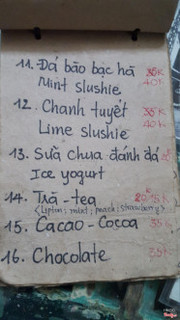 11. Đá bào bạc hà 35K
Mint slushie 40K
12. Chanh tuyết 35K
Lime slushie 40K
13. Sữa chua đánh đá
Ice yogurt
14. Trà - tea
(Lipton; mint; peach; strawberry)
15. Cacao - Cocoa 35K
16. Chocolate 35K